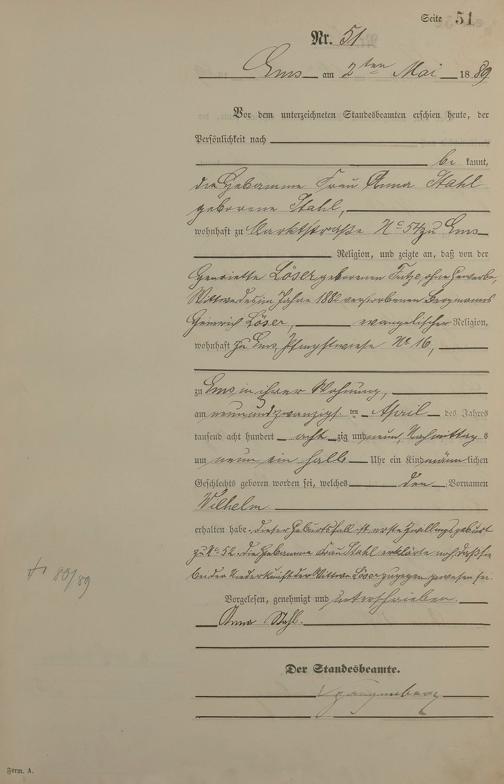 Seite 51
Nr. 51
Ems am 2ten Mai 1889
Vor dem unterzeichneten Standesbeamten erschien heute, der
Persönlichkeit nach
be kannt,
die Hebamme Frau Anna Stahl
geborene Stahl,
wohnhaft zu Marktstraße No 54 zu Ems
Religion, und zeigte an, daß von der
Henriette Löser geborenen ohne Gewerbe,
Wittwe des im Jahre 188 verstorbenen Bergmanns
Heinrich Löser, evangelischer Religion,
wohnhaft zu Ems, Pfingstwiese No 16,
zu Ems in ihrer Wohnung,
am neunundzwanzigsten April des Jahres
tausend acht hundert acht zig und neun, Nachmittags
um neun ein halb Uhr ein Kind männlichen
Geschlechts geboren worden sei, welches den Vornamen
Wilhelm
erhalten habe, dieser Geburtsfall ist erste Zwillingsgeburt
zu No 52. die Hebamme Frau Stahl erklärte noch, daß sie
bei der Niederkunft der Wittwe Löser zugegen gewesen sei.
Vorgelesen, genehmigt und unterschrieben.
Anna Stahl.
Der Standesbeamte.
Spangenberg
80/89
Form. A.